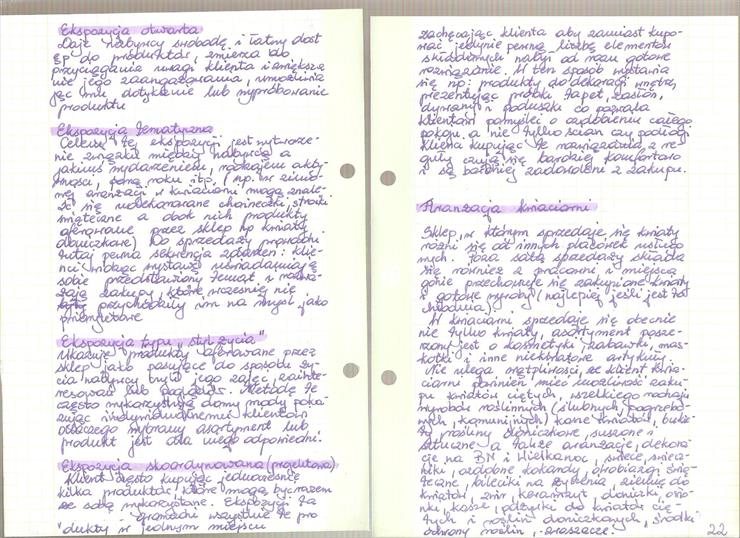 Ekspozycja otwarta
Daje nabywcy swobodę i łatny dost
ęp do produktów, zmierza do
przyciągania uwagi klienta i zwiększa
nie jego zaangażowania, umożliwia
jąc mu dotykanie lub wypróbowanie
produktu
Ekspozycja tematyczna
Celem tej ekspozycji jest wytworze-
nie związku między nabywcą a
jakimś wydarzeniem, rodzajem akty-
wności, porą roku itp., (np. w zimo-
wej aranżacji w kwiaciarni mogą znale-
źć się udekorowane choineczki, stroiki
świąteczne a obok nich produkty
oferowane przez sklep np kwiaty
doniczkowe) Do sprzedaży prowadzi
tutaj pewna sekwencja zdarzeń: klie-
nci widząc wystawę uświadamiają
sobie przedstawiony temat i rozwa-
żają zakup, które wcześniej nie
przychodziły im na myśl jako
priorytetowe
Ekspozycja typu "styl życia"
Ukazuje produkty oferowane przez
sklep jako pasujące do sposobu ży-
cia nabywcy bądź jego zajęć, zainte-
resowań lub poglądów. Metodę tę
często wykorzystują domy mody poka-
zując indywidualnemu klientowi
dlaczego wybrany asortyment lub
produkt jest dla niego odpowiedni.
Ekspozycja skoordynowana (projektowa)
Klient często kupując jednocześnie
kilka produktów, które mogą być razem
ze sobą wykorzystane. Ekspozycja ta
gromadzi wszystkie te pro
dukty w jednym miejscu
zachęcając klienta aby zamiast kupo-
wać jedynie pewną liczbę elementów
składowych nabył od razu gotowe
rozwiązanie. W ten sposób wystawia
się np. produkty do dekoracji wnętrz,
prezentując próbki tapet, zasłon,
dywany i poduszki co pozwala
klientom pomyśleć o ozdobieniu całego
pokoju a nie tylko ścian czy podłogi
Klienci kupując te rozwiązania z re
guły czują się bardziej komfortowo
i są bardziej zadowoleni z zakupu.
Aranżacja kwiaciarni
Sklep, w którym sprzedaje się kwiaty
różni się od innych placówek usługo-
wych. Poza salą sprzedaży składa
się również z pracowni i miejsca
gdzie przechowuje się zakupione kwiaty
i gotowe wyroby (najlepiej jeśli jest to
chłodnia).
W kwiaciarni sprzedaje się obecnie
nie tylko kwiaty, asortyment posze-
rzony jest o kosmetyki, zabawki, mas-
kotki i inne niektóre artykuły.
Nie ulega wątpliwości, że klient kwia-
ciarni powinien mieć możliwość zaku-
pu kwiatów ciętych, wszelkiego rodzaju
wyrobów roślinnych (ślubnych, pogrzebo-
wych, komunijnych) kosze kwiatów, bukie
ty, rośliny doniczkowe, suszone i
sztuczne a także aranżacje, dekora-
cje na BN i Wielkanoc, świece, świecz-
niki, ozdobne kokardy, drobiazgi świą-
teczne, bileciki na życzenia, ziemię do
kwiatów, żwir, keramzyt, doniczki, osło-
nki, kosze, odżywki do kwiatów cię-
tych i roślin doniczkowych, środki
ochrony roślin, zraszacze.
22